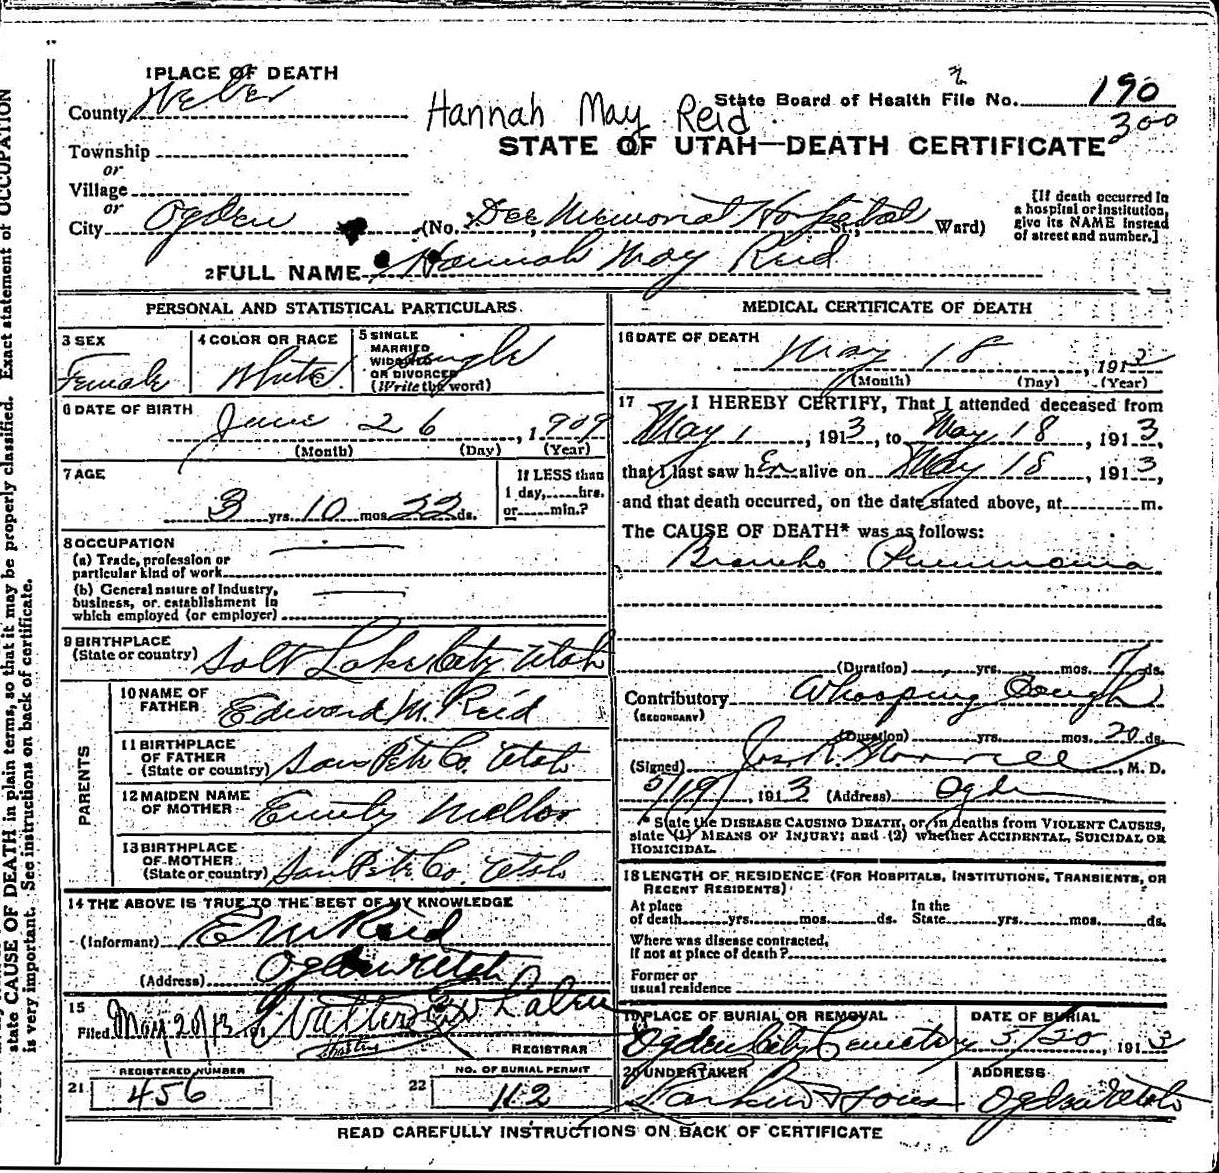 1 PLACE OF DEATH
County Weber
Hannah May Reid
State Board of Health File No. 190
300
STATE OF UTAH—DEATH CERTIFICATE
Township
or
Village
or
City Ogden (No. Dee Memorial Hospital St.; Ward)
[If death occurred in a hospital or institution, give its NAME instead of street and number.]
2 FULL NAME Hannah May Reid
PERSONAL AND STATISTICAL PARTICULARS
3 SEX
Female
4 COLOR OR RACE
White
5 SINGLE
MARRIED
WIDOWED
OR DIVORCED
(Write the word)
Single
6 DATE OF BIRTH
June 26, 1909
(Month) (Day) (Year)
7 AGE
3 yrs. 10 mos. 22 ds.
If LESS than
1 day, hrs.
or min.?
8 OCCUPATION
(a) Trade, profession or
particular kind of work
(b) General nature of Industry,
business, or establishment in
which employed (or employer)
9 BIRTHPLACE
(State or country) Salt Lake City Utah
PARENTS
10 NAME OF
FATHER Edward M. Reid
11 BIRTHPLACE
OF FATHER
(State or country) San Pete Co. Utah
12 MAIDEN NAME
OF MOTHER Emily Mellor
13 BIRTHPLACE
OF MOTHER
(State or country) San Pete Co. Utah
14 THE ABOVE IS TRUE TO THE BEST OF MY KNOWLEDGE
(Informant) E M Reid
(Address) Ogden Utah
15
Filed May 20/13, 191
REGISTRAR
REGISTERED NUMBER
21 456
NO. OF BURIAL PERMIT
22 112
MEDICAL CERTIFICATE OF DEATH
16 DATE OF DEATH
May 18, 1913
(Month) (Day) (Year)
17 I HEREBY CERTIFY, That I attended deceased from
May 1, 1913, to May 18, 1913,
that I last saw h er alive on May 18, 1913,
and that death occurred, on the date stated above, at m.
The CAUSE OF DEATH* was as follows:
Broncho Pneumonia
(Duration) yrs. mos. 17 ds.
Contributory Whooping Cough
(SECONDARY)
(Duration) yrs. mos. 20 ds.
(Signed) Jos. R. Morrell, M. D.
5/19, 1913 (Address) Ogden
* State the DISEASE CAUSING DEATH, or, in deaths from VIOLENT CAUSES,
state (1) MEANS OF INJURY; and (2) whether ACCIDENTAL, SUICIDAL OR
HOMICIDAL.
18 LENGTH OF RESIDENCE (FOR HOSPITALS, INSTITUTIONS, TRANSIENTS, OR
RECENT RESIDENTS)
At place
of death yrs. mos. ds.
In the
State yrs. mos. ds.
Where was disease contracted,
if not at place of death?
Former or
usual residence
19 PLACE OF BURIAL OR REMOVAL
Ogden City Cemetery
DATE OF BURIAL
5/20, 1913
20 UNDERTAKER
Larkin & Sons
ADDRESS
Ogden Utah
READ CAREFULLY INSTRUCTIONS ON BACK OF CERTIFICATE
state CAUSE OF DEATH in plain terms, so that it may be properly classified. Exact statement of OCCUPATION
is very important. See instructions on back of certificate.